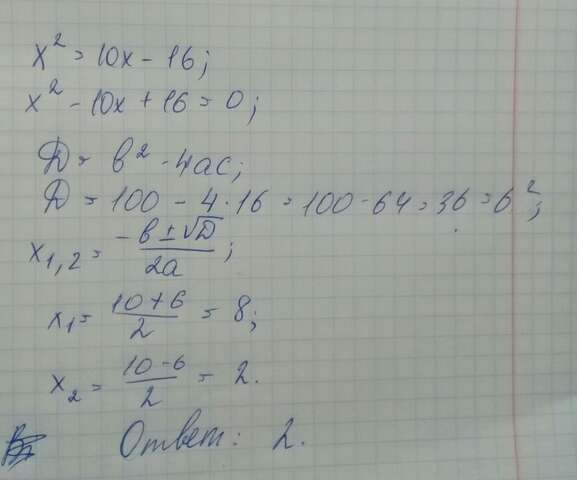 x² = 10x - 16;
x² - 10x + 16 = 0;
D = b² - 4ac;
D = 100 - 4·16 = 100 - 64 = 36 = 6²;
x₁,₂ = (-b ± √D)/2a;
x₁ = (10+6)/2 = 8;
x₂ = (10-6)/2 = 2.
Ответ: 2.